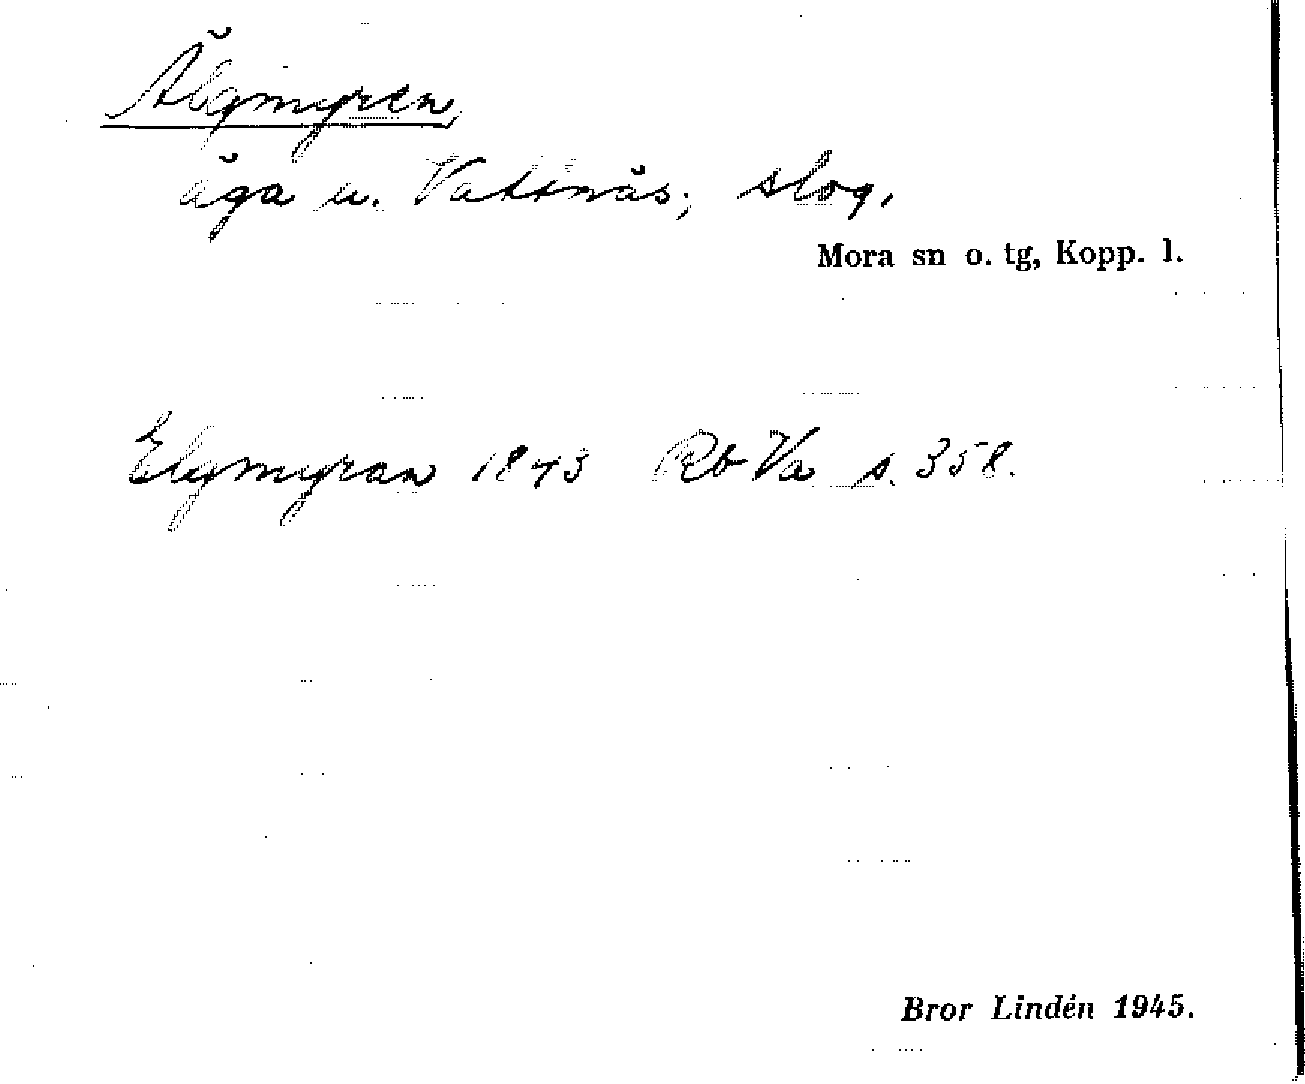 Älgmyren
äga u. Vattnäs; slog.
Mora sn o. tg, Kopp. l.
Elgmyran 1843 Rb Va s. 358.
Bror Lindén 1945.